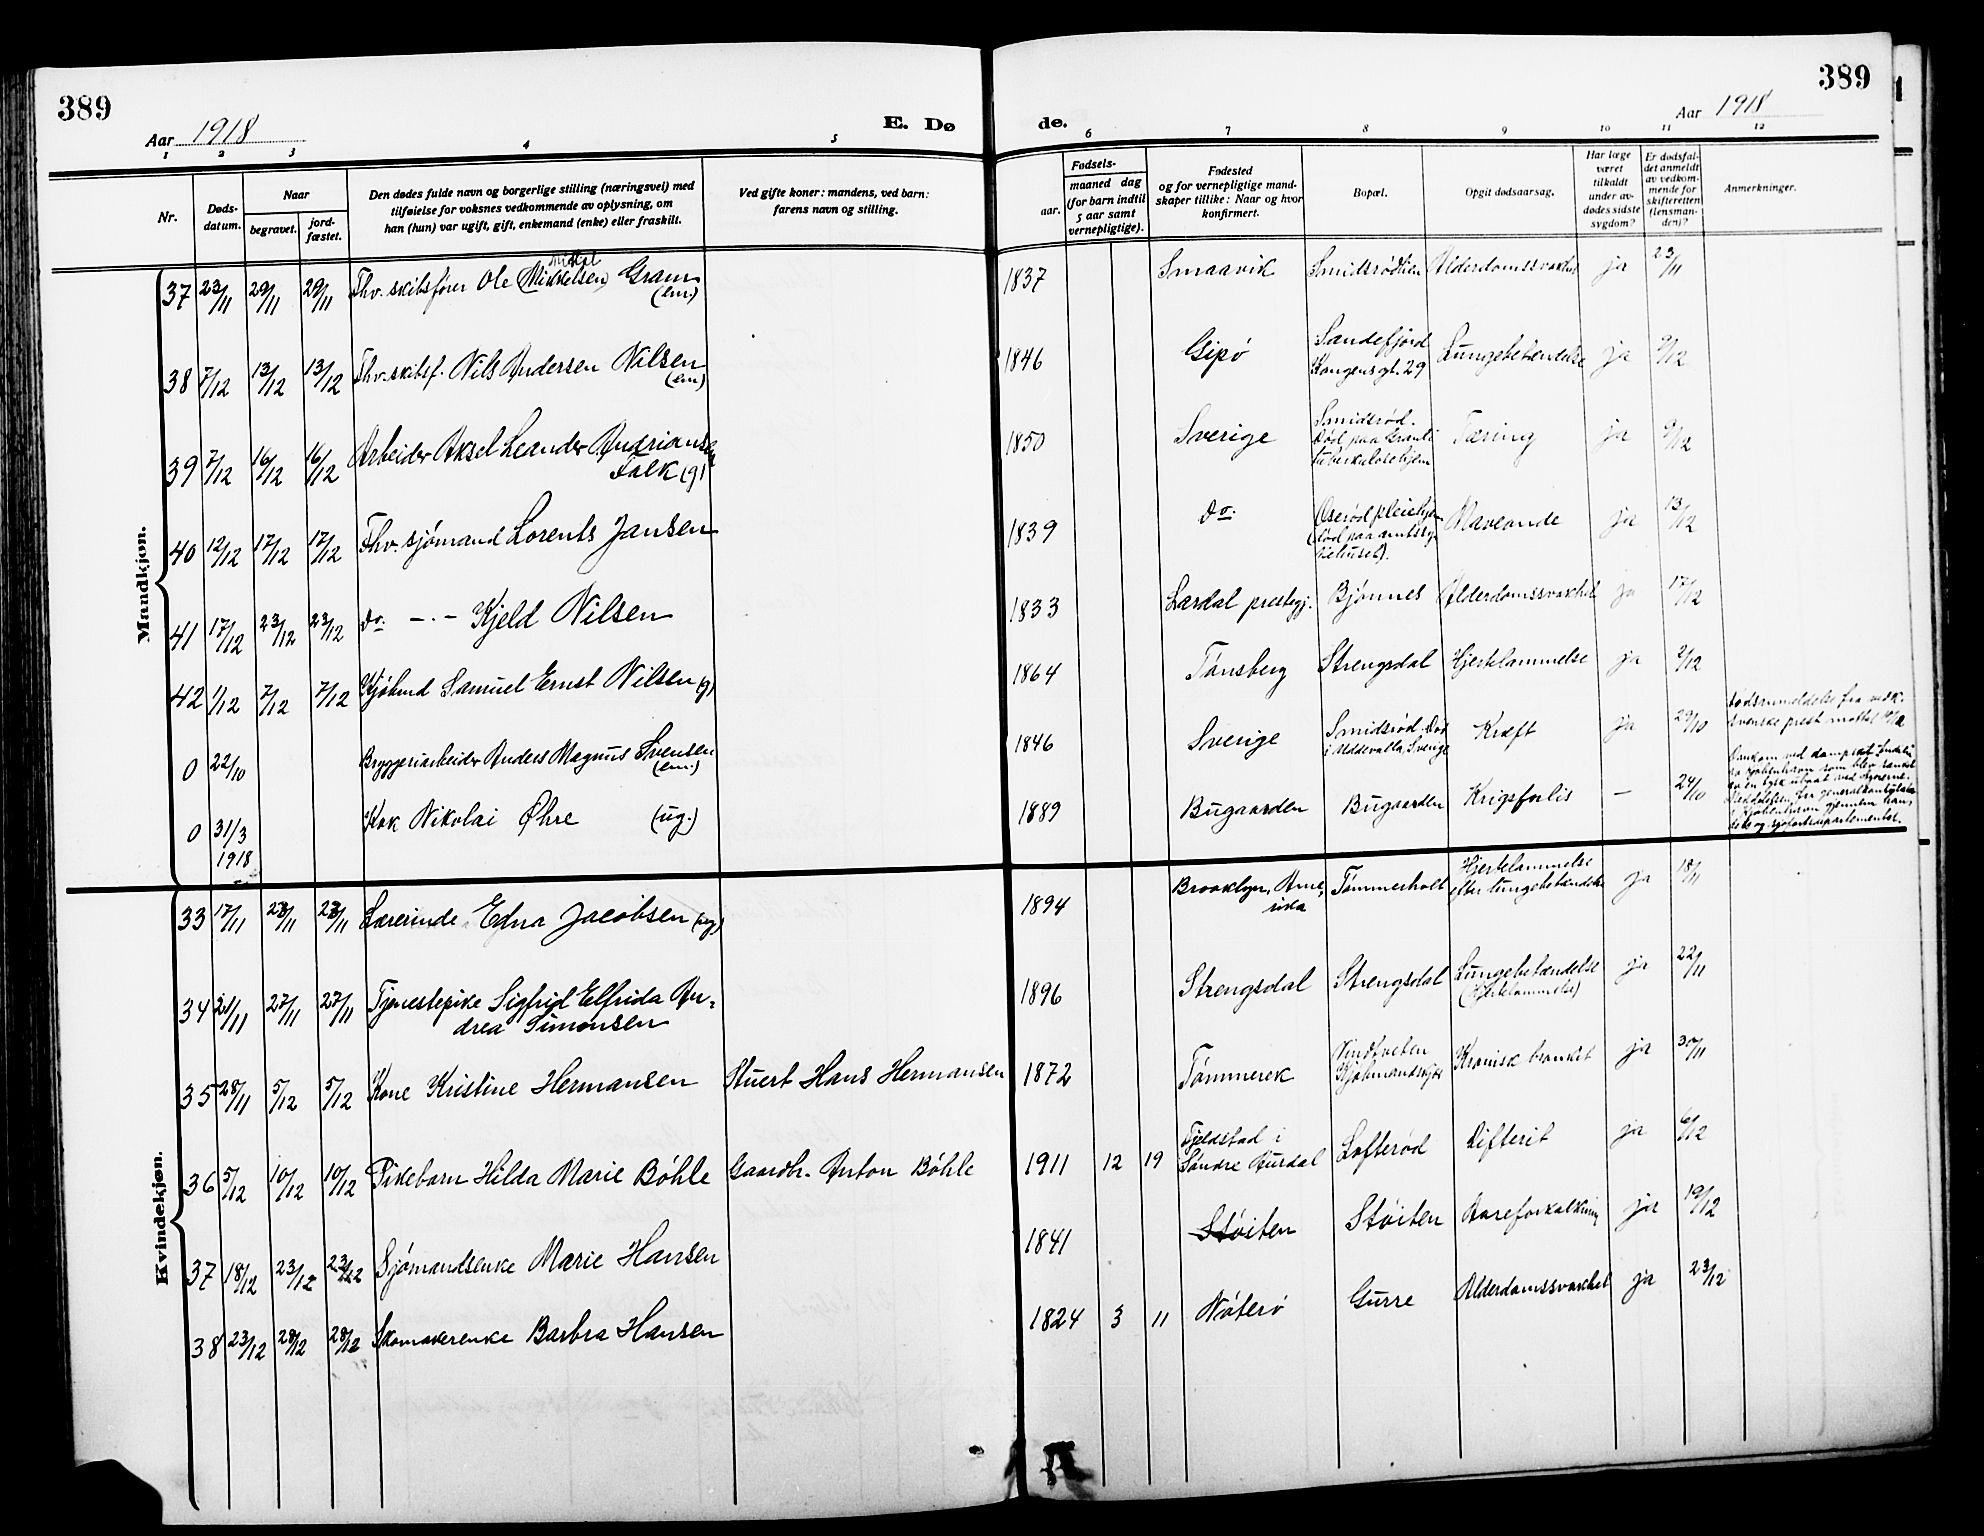 389
389
Aar 1918
E. Dø
de.
Aar 1918
1 2 3 4 5 6 7 8 9 10 11 12
Nr.
Døds-
datum.
Naar
begravet.
jord-
fæstet.
Den dødes fulde navn og borgerlige stilling (næringsvei) med
tilføielse for voksnes vedkommende av oplysning, om
han (hun) var ugift, gift, enkemand (enke) eller fraskilt.
Ved gifte koner: mandens, ved barn:
farens navn og stilling.
Fødsels-
aar.
maaned dag
(for barn indtil
5 aar samt
vernepligtige).
Fødested
og for vernepligtige mand-
skaper tillike: Naar og hvor
konfirmert.
Bopæl.
Opgit dødsaarsag.
Har læge
været
tilkaldt
under av-
dødes sidste
sygdom?
Er dødsfal-
det anmeldt
av vedkom-
mende for
skifteretten
(lensman-
den)?
Anmerkninger.
Mandkjøn.
37 23/11 29/11 29/11 Fhv. skibsfører Ole (Mikkelsen) Gram (em) 1837 Smaavik Smidsrødtien Alderdomssvakhet ja 23/11
38 7/12 13/12 13/12 Fhv. skibsf. Nils Andersen Nilsen (em) 1846 Gipø Sandefjord Kongensgt. 29 Lungebetændelse ja 9/12
39 7/12 16/12 16/12 Arbeider Aksel Leander Andriansen Falk (g) 1850 Sverige Smidsrød. Død paa Granli tuberkulosehjem Tæring ja 9/12
40 12/12 17/12 17/12 Fhv. sjømand Lorents Jansen 1839 Do. Øserød pleiehjem (død paa amtssykehuset). Maveonde ja 13/12
41 17/12 23/12 23/12 Do. -.- Kjeld Nilsen 1833 Lardal prestegj. Bjønnes Alderdomssvakhet ja 17/12
42 1/12 7/12 7/12 Kjøbmd Samuel Ernst Nilsen (g) 1864 Tønsberg Strengsdal Hjertelammelse ja 2/12
0 22/10 Bryggeriarbeider Anders Magnus Svensen (em.) 1846 Sverige Smidsrød. Død i Uddevalla, Sverige Kræft ja 29/10 Dødsanmeldelse fra vedk. svenske prest mottat
0 31/3 1918 Kok Nikolai Øhre (ug.) 1889 Bugaarden Bugaarden Krigsforlis — 24/10 Omkom ved dampsk. som blev sænket av en tysk ubaat ved Azorerne. Meddelelsen fra generalkonsulatet i Kjøbenhavn gjennem handels og sjøfartsdepartementet.
Kvindekjøn.
33 17/11 23/11 23/11 Lærerinde Edna Jacobsen (ug) 1894 Brooklyn, Amerika Tømmerholt Hjertelammelse efter lungebetændelse ja 18/11
34 21/11 27/11 27/11 Tjenestepike Sigfrid Elfrida An-
drea Simonsen 1896 Strengsdal Strengsdal Lungebetændelse (Hjertelammelse) ja 22/11
35 28/11 5/12 5/12 Kone Kristine Hermansen Stuert Hans Hermansen 1872 Tømmerek Vindtveten Kjøbmandskjær Kronisk bronkit ja 30/11
36 5/12 10/12 10/12 Pikebarn Hilda Marie Bøhle Gaardbr. Anton Bøhle 1911 12 19 Fjeldstad i Søndre Aurdal Lofterød Difterit ja 6/12
37 18/12 23/12 23/12 Sjømandsenke Marie Hansen 1841 Støiten Støiten Aareforkalkning ja 19/12
38 23/12 28/12 28/12 Skomakerenke Barbra Hansen 1824 3 11 Nøterø Gurre Alderdomssvakhet ja 23/12